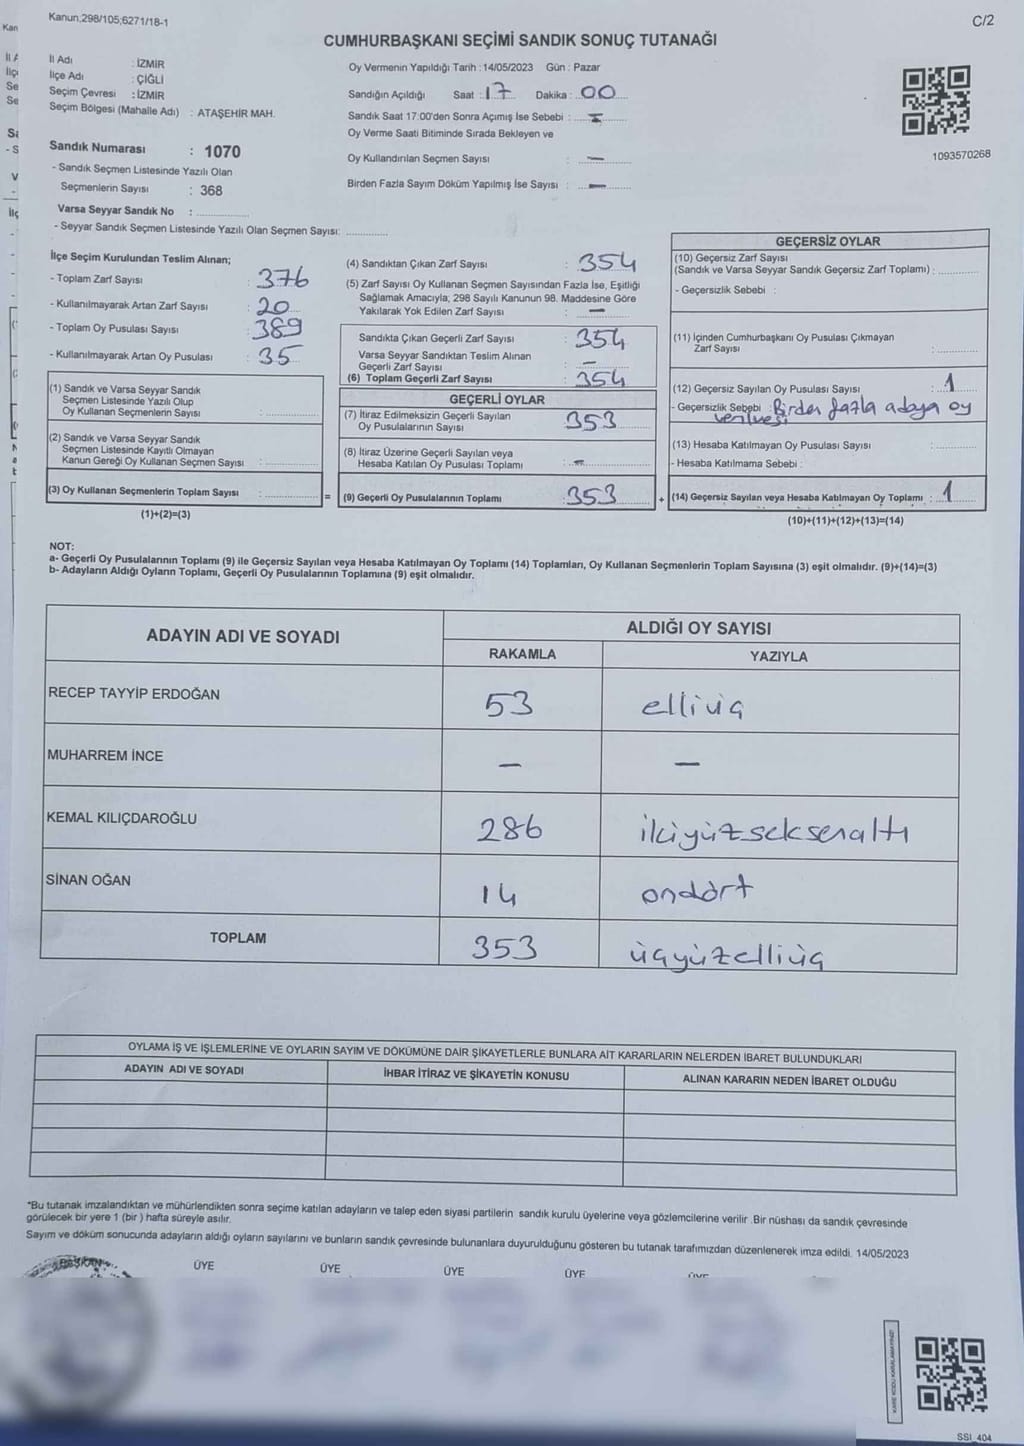 Kanun;298/105;6271/18-1
C/2
CUMHURBAŞKANI SEÇİMİ SANDIK SONUÇ TUTANAĞI
İl Adı : İZMİR
İlçe Adı : ÇİĞLİ
Seçim Çevresi : İZMİR
Seçim Bölgesi (Mahalle Adı) : ATAŞEHİR MAH.
Sandık Numarası : 1070
- Sandık Seçmen Listesinde Yazılı Olan
Seçmenlerin Sayısı : 368
Varsa Seyyar Sandık No :
- Seyyar Sandık Seçmen Listesinde Yazılı Olan Seçmen Sayısı:
Oy Vermenin Yapıldığı Tarih :14/05/2023 Gün : Pazar
Sandığın Açıldığı Saat : 17 Dakika : 00
Sandık Saat 17:00'den Sonra Açımış İse Sebebi :
Oy Verme Saati Bitiminde Sırada Bekleyen ve
Oy Kullandırılan Seçmen Sayısı : —
Birden Fazla Sayım Döküm Yapılmış İse Sayısı : —
1093570268
İlçe Seçim Kurulundan Teslim Alınan;
- Toplam Zarf Sayısı : 376
- Kullanılmayarak Artan Zarf Sayısı : 20
- Toplam Oy Pusulası Sayısı : 389
- Kullanılmayarak Artan Oy Pusulası : 35
(1) Sandık ve Varsa Seyyar Sandık
Seçmen Listesinde Yazılı Olup
Oy Kullanan Seçmenlerin Sayısı :
(2) Sandık ve Varsa Seyyar Sandık
Seçmen Listesinde Kayıtlı Olmayan
Kanun Gereği Oy Kullanan Seçmen Sayısı :
(3) Oy Kullanan Seçmenlerin Toplam Sayısı : =
(1)+(2)=(3)
(4) Sandıktan Çıkan Zarf Sayısı : 354
(5) Zarf Sayısı Oy Kullanan Seçmen Sayısından Fazla İse, Eşitliği
Sağlamak Amacıyla; 298 Sayılı Kanunun 98. Maddesine Göre
Yakılarak Yok Edilen Zarf Sayısı : —
Sandıkta Çıkan Geçerli Zarf Sayısı : 354
Varsa Seyyar Sandıktan Teslim Alınan
Geçerli Zarf Sayısı : —
(6) Toplam Geçerli Zarf Sayısı : 354
GEÇERLİ OYLAR
(7) İtiraz Edilmeksizin Geçerli Sayılan
Oy Pusulalarının Sayısı : 353
(8) İtiraz Üzerine Geçerli Sayılan veya
Hesaba Katılan Oy Pusulası Toplamı : —
(9) Geçerli Oy Pusulalarının Toplamı : 353 +
GEÇERSİZ OYLAR
(10) Geçersiz Zarf Sayısı
(Sandık ve Varsa Seyyar Sandık Geçersiz Zarf Toplamı) :
- Geçersizlik Sebebi :
(11) İçinden Cumhurbaşkanı Oy Pusulası Çıkmayan
Zarf Sayısı :
(12) Geçersiz Sayılan Oy Pusulası Sayısı : 1
- Geçersizlik Sebebi : Birden fazla adaya oy
verilmesi
(13) Hesaba Katılmayan Oy Pusulası Sayısı :
- Hesaba Katılmama Sebebi :
(14) Geçersiz Sayılan veya Hesaba Katılmayan Oy Toplamı : 1
(10)+(11)+(12)+(13)=(14)
NOT:
a- Geçerli Oy Pusulalarının Toplamı (9) ile Geçersiz Sayılan veya Hesaba Katılmayan Oy Toplamı (14) Toplamları, Oy Kullanan Seçmenlerin Toplam Sayısına (3) eşit olmalıdır. (9)+(14)=(3)
b- Adayların Aldığı Oyların Toplamı, Geçerli Oy Pusulalarının Toplamına (9) eşit olmalıdır.
ADAYIN ADI VE SOYADI
ALDIĞI OY SAYISI
RAKAMLA YAZIYLA
RECEP TAYYİP ERDOĞAN 53 elliüç
MUHARREM İNCE — —
KEMAL KILIÇDAROĞLU 286 ikiyüzseksenaltı
SİNAN OĞAN 14 ondört
TOPLAM 353 üçyüzelliüç
OYLAMA İŞ VE İŞLEMLERİNE VE OYLARIN SAYIM VE DÖKÜMÜNE DAİR ŞİKAYETLERLE BUNLARA AİT KARARLARIN NELERDEN İBARET BULUNDUKLARI
ADAYIN ADI VE SOYADI İHBAR İTİRAZ VE ŞİKAYETİN KONUSU ALINAN KARARIN NEDEN İBARET OLDUĞU
*Bu tutanak imzalandıktan ve mühürlendikten sonra seçime katılan adayların ve talep eden siyasi partilerin sandık kurulu üyelerine veya gözlemcilerine verilir .Bir nüshası da sandık çevresinde
görülecek bir yere 1 (bir ) hafta süreyle asılır.
Sayım ve döküm sonucunda adayların aldığı oyların sayılarını ve bunların sandık çevresinde bulunanlara duyurulduğunu gösteren bu tutanak tarafımızdan düzenlenerek imza edildi. 14/05/2023
BAŞKAN ÜYE ÜYE ÜYE ÜYE ÜYE
KARE KODU KARALAMAYINIZ!
SSI_404